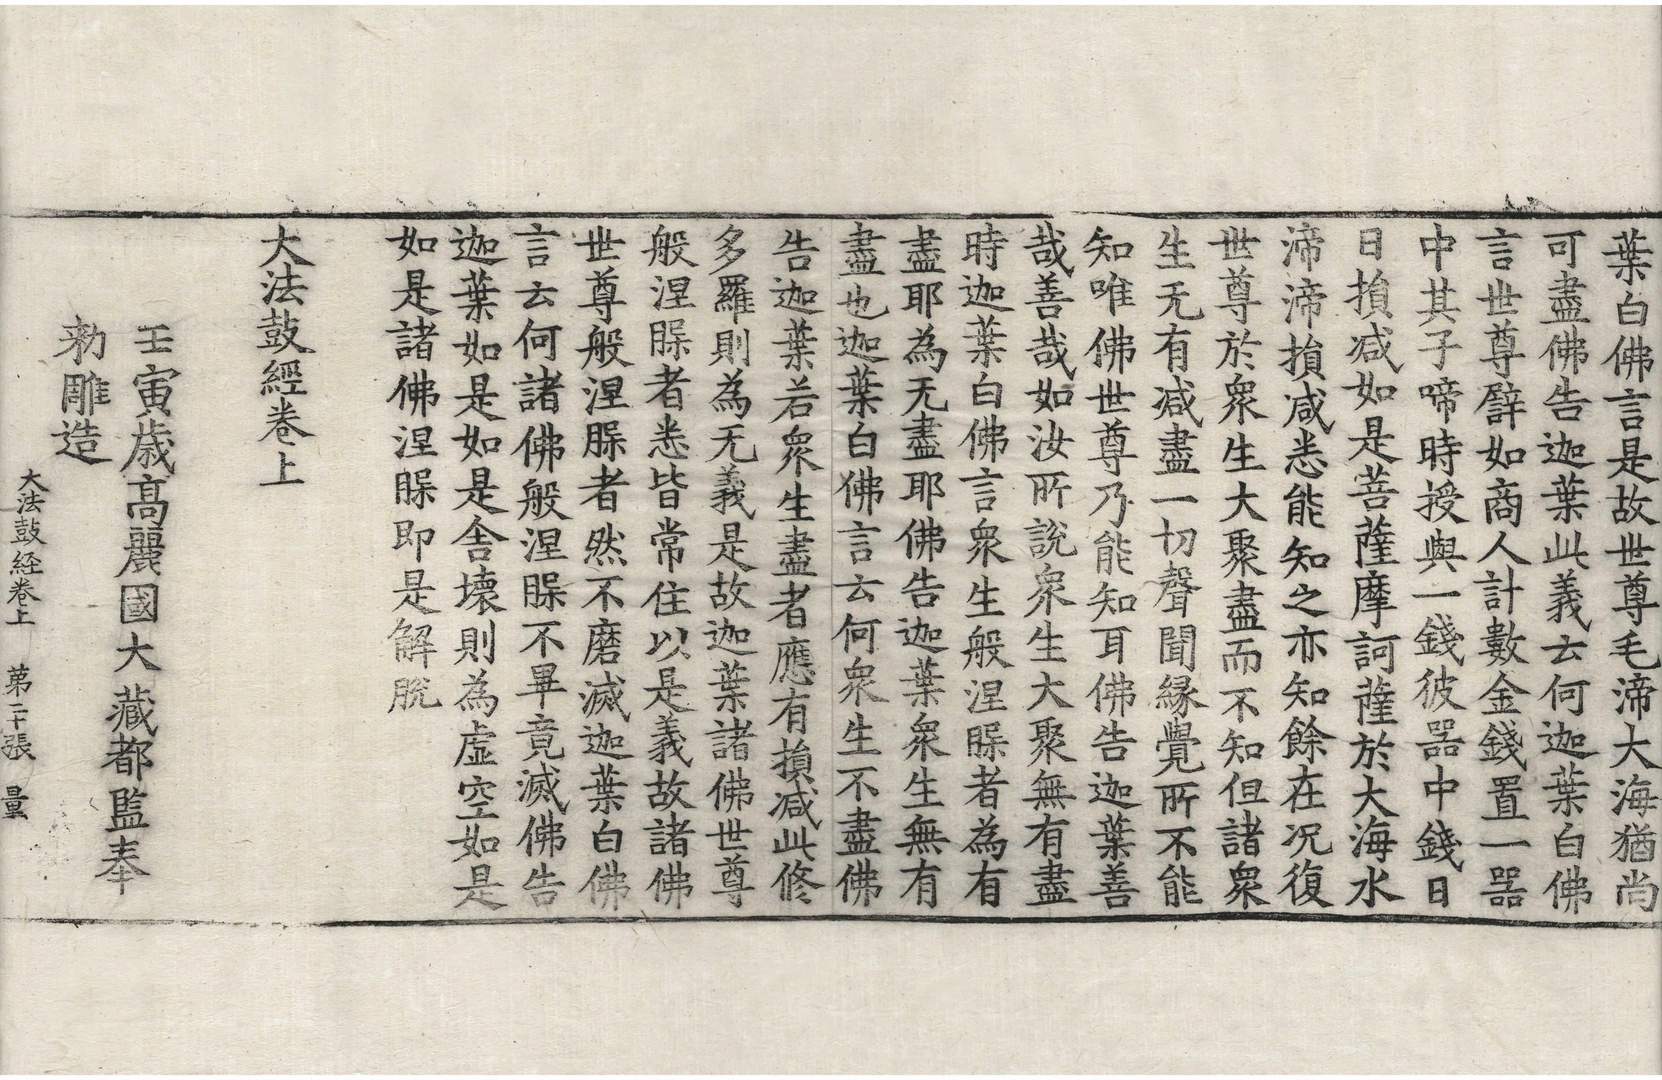 葉白佛言是故世尊毛渧大海猶尚
可盡佛告迦葉此義云何迦葉白佛
言世尊譬如商人計數金錢置一器
中其子啼時授與一錢彼器中錢日
日損減如是菩薩摩訶薩於大海水
渧渧損減悉能知之亦知餘在况復
世尊於衆生大聚盡而不知但諸衆
生无有減盡一切聲聞緣覺所不能
知唯佛世尊乃能知耳佛告迦葉善
哉善哉如汝所說衆生大聚無有盡
時迦葉白佛言衆生般涅槃者為有
盡耶為无盡耶佛告迦葉衆生無有
盡也迦葉白佛言云何衆生不盡佛
告迦葉若衆生盡者應有損減此修
多羅則為无義是故迦葉諸佛世尊
般涅槃者悉皆常住以是義故諸佛
世尊般涅槃者然不磨滅迦葉白佛
言云何諸佛般涅槃不畢竟滅佛告
迦葉如是如是舍壞則為虛空如是
如是諸佛涅槃即是解脫
大法鼓經卷上
壬寅歲高麗國大藏都監奉
勅雕造
大法鼓經卷上 第二十張 量